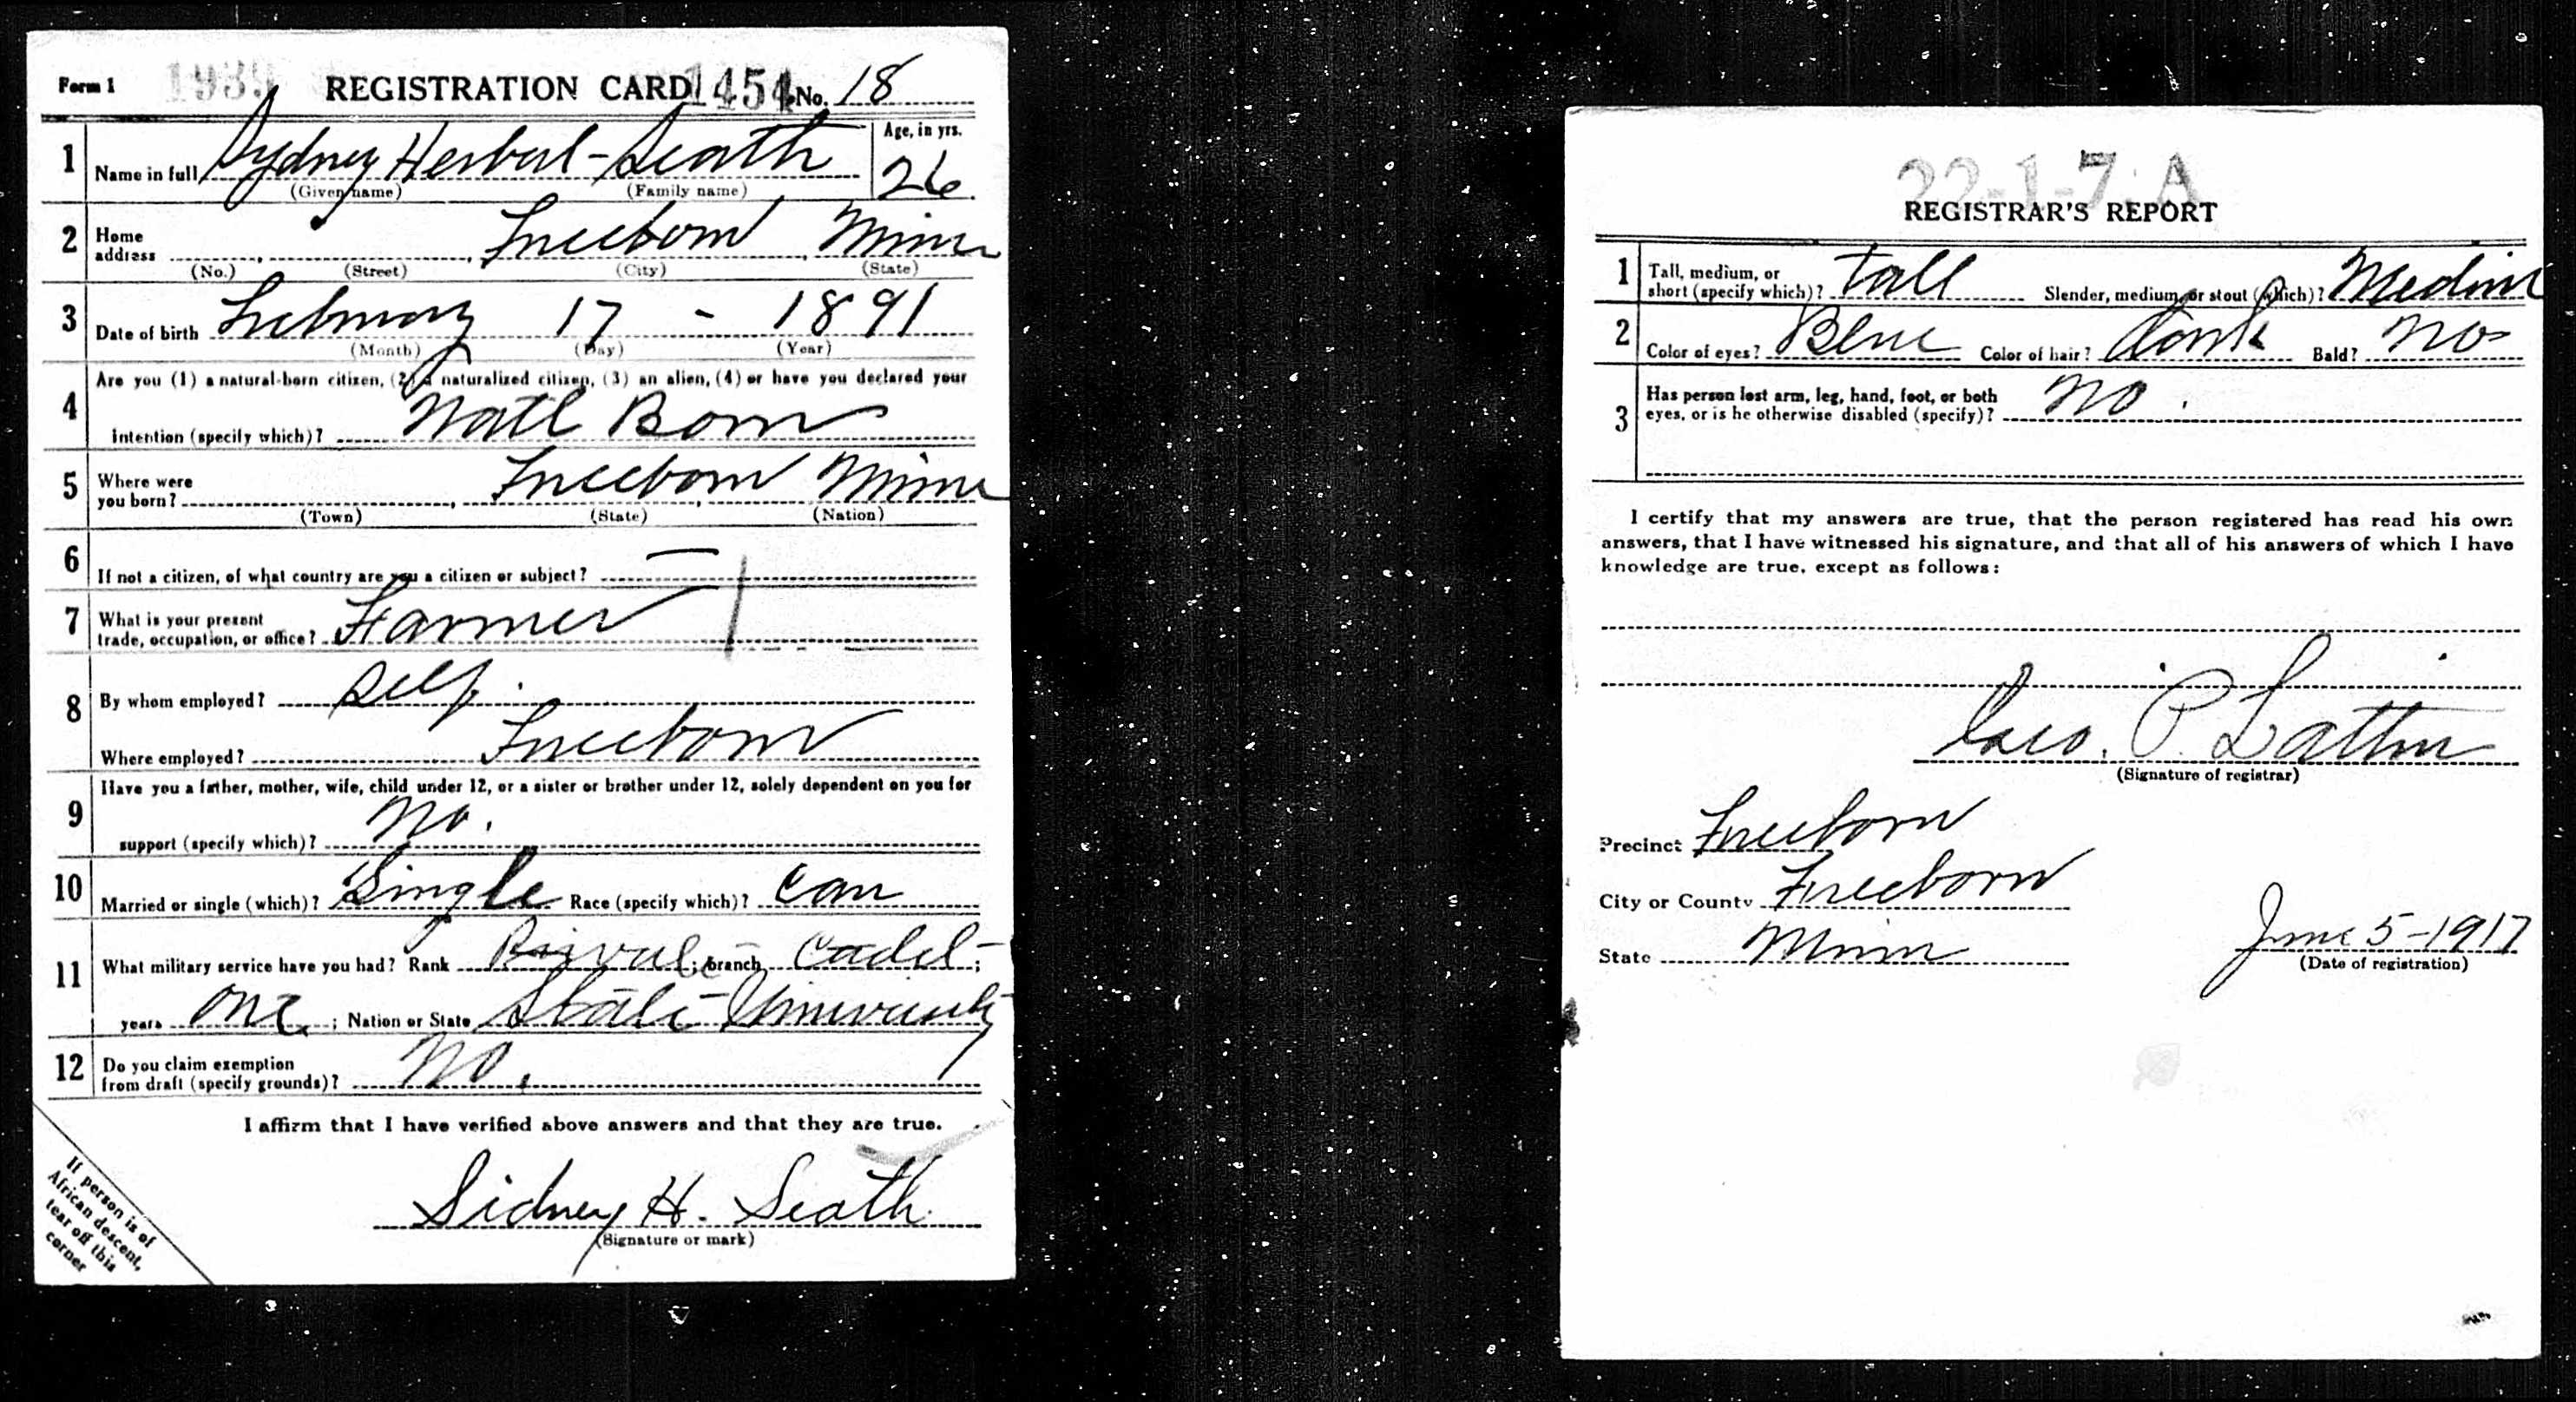 Form 1 1939 REGISTRATION CARD 1454 No. 18
1 Name in full Sydney Herbert - Seath Age, in yrs. 26
(Given name) (Family name)
2 Home address Freeborn Minn
(No.) (Street) (City) (State)
3 Date of birth February 17 - 1891
(Month) (Day) (Year)
4 Are you (1) a natural-born citizen, (2) a naturalized citizen, (3) an alien, (4) or have you declared your
intention (specify which)? Natl Born
5 Where were you born? Freeborn Minn
(Town) (State) (Nation)
6 If not a citizen, of what country are you a citizen or subject? —
7 What is your present trade, occupation, or office? Farmer
8 By whom employed? self.
Where employed? Freeborn
9 Have you a father, mother, wife, child under 12, or a sister or brother under 12, solely dependent on you for
support (specify which)? No.
10 Married or single (which)? Single Race (specify which)? Cau
11 What military service have you had? Rank Private; branch Cadet;
years one; Nation or State State University
12 Do you claim exemption from draft (specify grounds)? No.
I affirm that I have verified above answers and that they are true.
Sidney H. Seath
(Signature or mark)
If person is of
African descent,
tear off this
corner
22-1-7. A
REGISTRAR'S REPORT
1 Tall, medium, or short (specify which)? Tall Slender, medium, or stout (which)? Medium
2 Color of eyes? Blue Color of hair? dark Bald? No
3 Has person lost arm, leg, hand, foot, or both
eyes, or is he otherwise disabled (specify)? No.
I certify that my answers are true, that the person registered has read his own
answers, that I have witnessed his signature, and that all of his answers of which I have
knowledge are true, except as follows:
Geo. P. Lattin
(Signature of registrar)
Precinct Freeborn
City or County Freeborn
State Minn June 5-1917
(Date of registration)